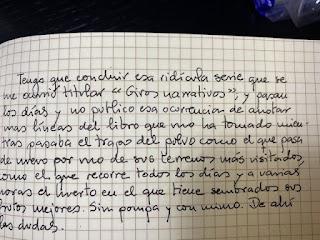 Tengo que concluir esa ridícula serie que se
me ocurrió titular "Giros narrativos"; y pasan
los días y no publico esa ocurrencia de anotar
unas líneas del libro que uno ha tomado mien-
tras pasaba el trapo del polvo como el que pasa
de nuevo por uno de sus terrenos más visitados,
como el que recorre todos los días y a varias
horas el huerto en el que tiene sembrados sus
frutos mejores. Sin pompa y con mimo. De ahí
las dudas.